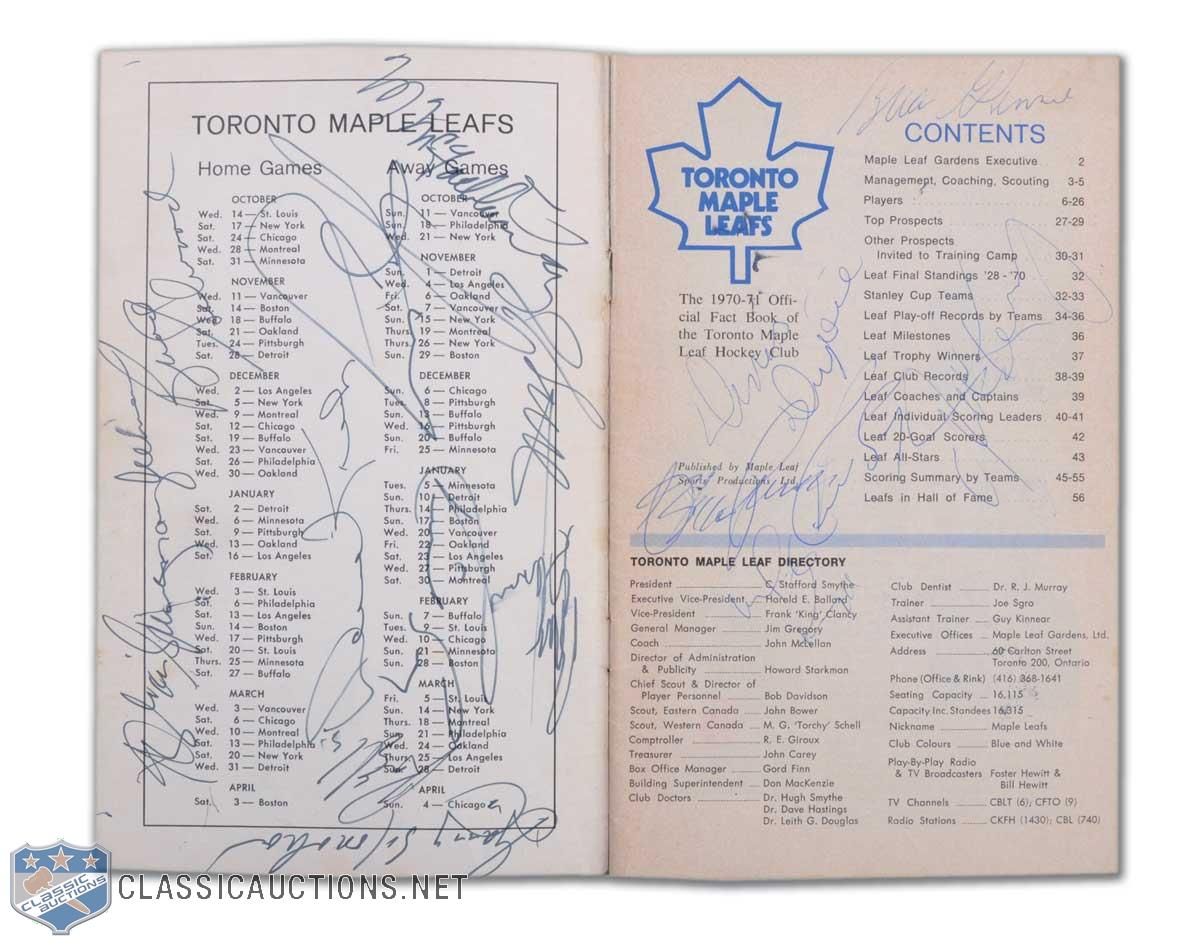 TORONTO MAPLE LEAFS
Home Games
OCTOBER
Wed. 14 — St. Louis
Sat. 17 — New York
Sat. 24 — Chicago
Wed. 28 — Montreal
Sat. 31 — Minnesota
NOVEMBER
Wed. 11 — Vancouver
Sat. 14 — Boston
Wed. 18 — Buffalo
Sat. 21 — Oakland
Tues. 24 — Pittsburgh
Sat. 28 — Detroit
DECEMBER
Wed. 2 — Los Angeles
Sat. 5 — New York
Wed. 9 — Montreal
Sat. 12 — Chicago
Sat. 19 — Buffalo
Wed. 23 — Vancouver
Sat. 26 — Philadelphia
Wed. 30 — Oakland
JANUARY
Sat. 2 — Detroit
Wed. 6 — Minnesota
Sat. 9 — Pittsburgh
Wed. 13 — Oakland
Sat. 16 — Los Angeles
FEBRUARY
Wed. 3 — St. Louis
Sat. 6 — Philadelphia
Sat. 13 — Los Angeles
Sun. 14 — Boston
Wed. 17 — Pittsburgh
Sat. 20 — St. Louis
Thurs. 25 — Minnesota
Sat. 27 — Buffalo
MARCH
Wed. 3 — Vancouver
Sat. 6 — Chicago
Wed. 10 — Montreal
Sat. 13 — Philadelphia
Sat. 20 — New York
Wed. 31 — Detroit
APRIL
Sat. 3 — Boston
Away Games
OCTOBER
Sun. 11 — Vancouver
Sun. 18 — Philadelphia
Wed. 21 — New York
NOVEMBER
Sun. 1 — Detroit
Wed. 4 — Los Angeles
Fri. 6 — Oakland
Sat. 7 — Vancouver
Sun. 15 — New York
Thurs. 19 — Montreal
Thurs. 26 — New York
Sun. 29 — Boston
DECEMBER
Sun. 6 — Chicago
Tues. 8 — Pittsburgh
Sun. 13 — Buffalo
Wed. 16 — Pittsburgh
Sun. 20 — Buffalo
Fri. 25 — Minnesota
JANUARY
Tues. 5 — Minnesota
Sun. 10 — Detroit
Thurs. 14 — Philadelphia
Sun. 17 — Boston
Wed. 20 — Vancouver
Fri. 22 — Oakland
Sat. 23 — Los Angeles
Wed. 27 — Pittsburgh
Sat. 30 — Montreal
FEBRUARY
Sun. 7 — Buffalo
Tues. 9 — St. Louis
Wed. 10 — Chicago
Sun. 21 — Minnesota
Sun. 28 — Boston
MARCH
Fri. 5 — St. Louis
Sun. 14 — New York
Thurs. 18 — Montreal
Sun. 21 — Philadelphia
Wed. 24 — Oakland
Thurs. 25 — Los Angeles
Sun. 28 — Detroit
APRIL
Sun. 4 — Chicago
TORONTO
MAPLE
LEAFS
The 1970-71 Offi-
cial Fact Book of
the Toronto Maple
Leaf Hockey Club
Published by Maple Leaf
Sports Productions Ltd.
CONTENTS
Maple Leaf Gardens Executive 2
Management, Coaching, Scouting 3-5
Players 6-26
Top Prospects 27-29
Other Prospects
Invited to Training Camp 30-31
Leaf Final Standings '28 - '70 32
Stanley Cup Teams 32-33
Leaf Play-off Records by Teams 34-36
Leaf Milestones 36
Leaf Trophy Winners 37
Leaf Club Records 38-39
Leaf Coaches and Captains 39
Leaf Individual Scoring Leaders 40-41
Leaf 20-Goal Scorers 42
Leaf All-Stars 43
Scoring Summary by Teams 45-55
Leafs in Hall of Fame 56
TORONTO MAPLE LEAF DIRECTORY
President C. Stafford Smythe
Executive Vice-President Harold E. Ballard
Vice-President Frank 'King' Clancy
General Manager Jim Gregory
Coach John McLellan
Director of Administration
& Publicity Howard Starkman
Chief Scout & Director of
Player Personnel Bob Davidson
Scout, Eastern Canada John Bower
Scout, Western Canada M. G. 'Torchy' Schell
Comptroller R. E. Giroux
Treasurer John Carey
Box Office Manager Gord Finn
Building Superintendent Don MacKenzie
Club Doctors Dr. Hugh Smythe
Dr. Dave Hastings
Dr. Leith G. Douglas
Club Dentist Dr. R. J. Murray
Trainer Joe Sgro
Assistant Trainer Guy Kinnear
Executive Offices Maple Leaf Gardens, Ltd.
Address 60 Carlton Street
Toronto 200, Ontario
Phone (Office & Rink) (416) 368-1641
Seating Capacity 16,115
Capacity Inc. Standees 16,315
Nickname Maple Leafs
Club Colours Blue and White
Play-By-Play Radio
& TV Broadcasters Foster Hewitt &
Bill Hewitt
TV Channels CBLT (6); CFTO (9)
Radio Stations CKFH (1430); CBL (740)
CLASSIC
AUCTIONS
CLASSICAUCTIONS.NET